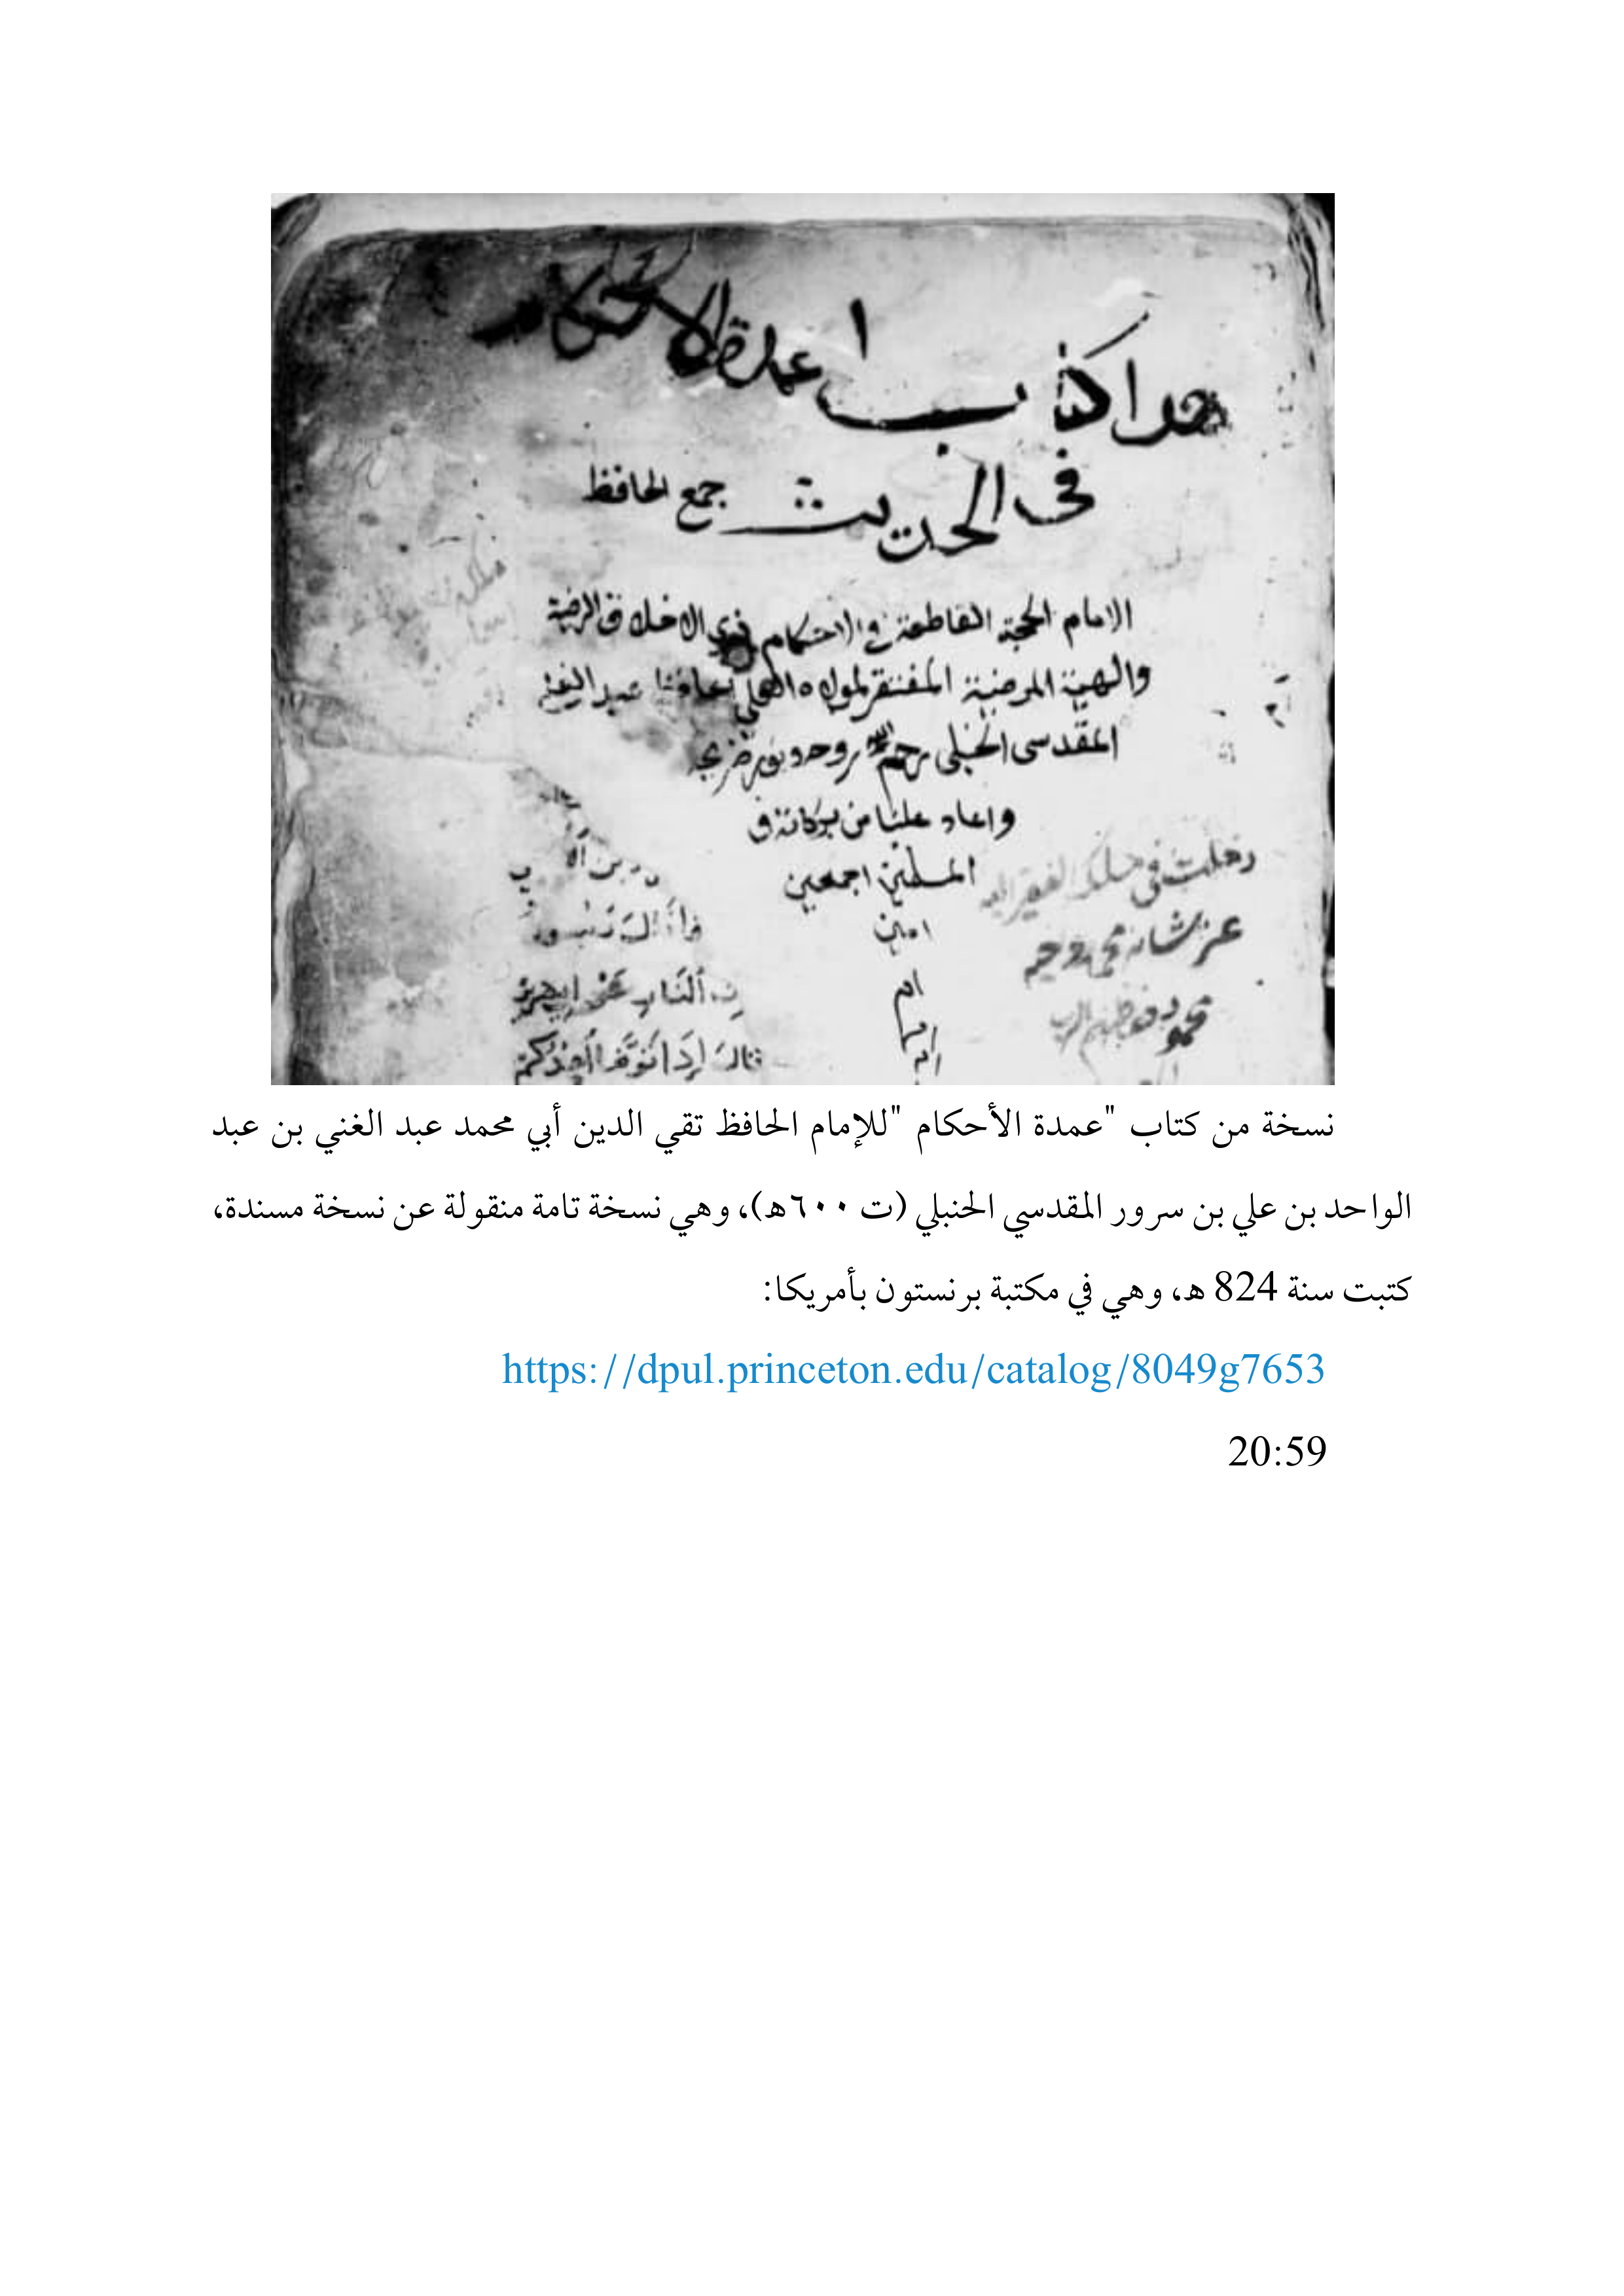 هدا كتاب عمدة الاحكام
فى الحديث جمع الحافظ
الامام الحجة القاطعة في الاحكام ذوي الاخلاق الرضية
والهيئة المرضية المفتقر لمولاه العلي عبد الغني
المقدسى الحنبلى رحم الله روحه ونور ضريحه
واعاد علينا من بركاته
المسلمين اجمعين
امين
دخلت في ملك الفقير اليه
عز شانه محمد
محمود
قال إذا توضأ أحدكم
نسخة من كتاب "عمدة الأحكام "للإمام الحافظ تقي الدين أبي محمد عبد الغني بن عبد
الواحد بن علي بن سرور المقدسي الحنبلي (ت ٦٠٠هـ)، وهي نسخة تامة منقولة عن نسخة مسندة،
كتبت سنة 824 هـ، وهي في مكتبة برنستون بأمريكا:
https://dpul.princeton.edu/catalog/8049g7653
20:59